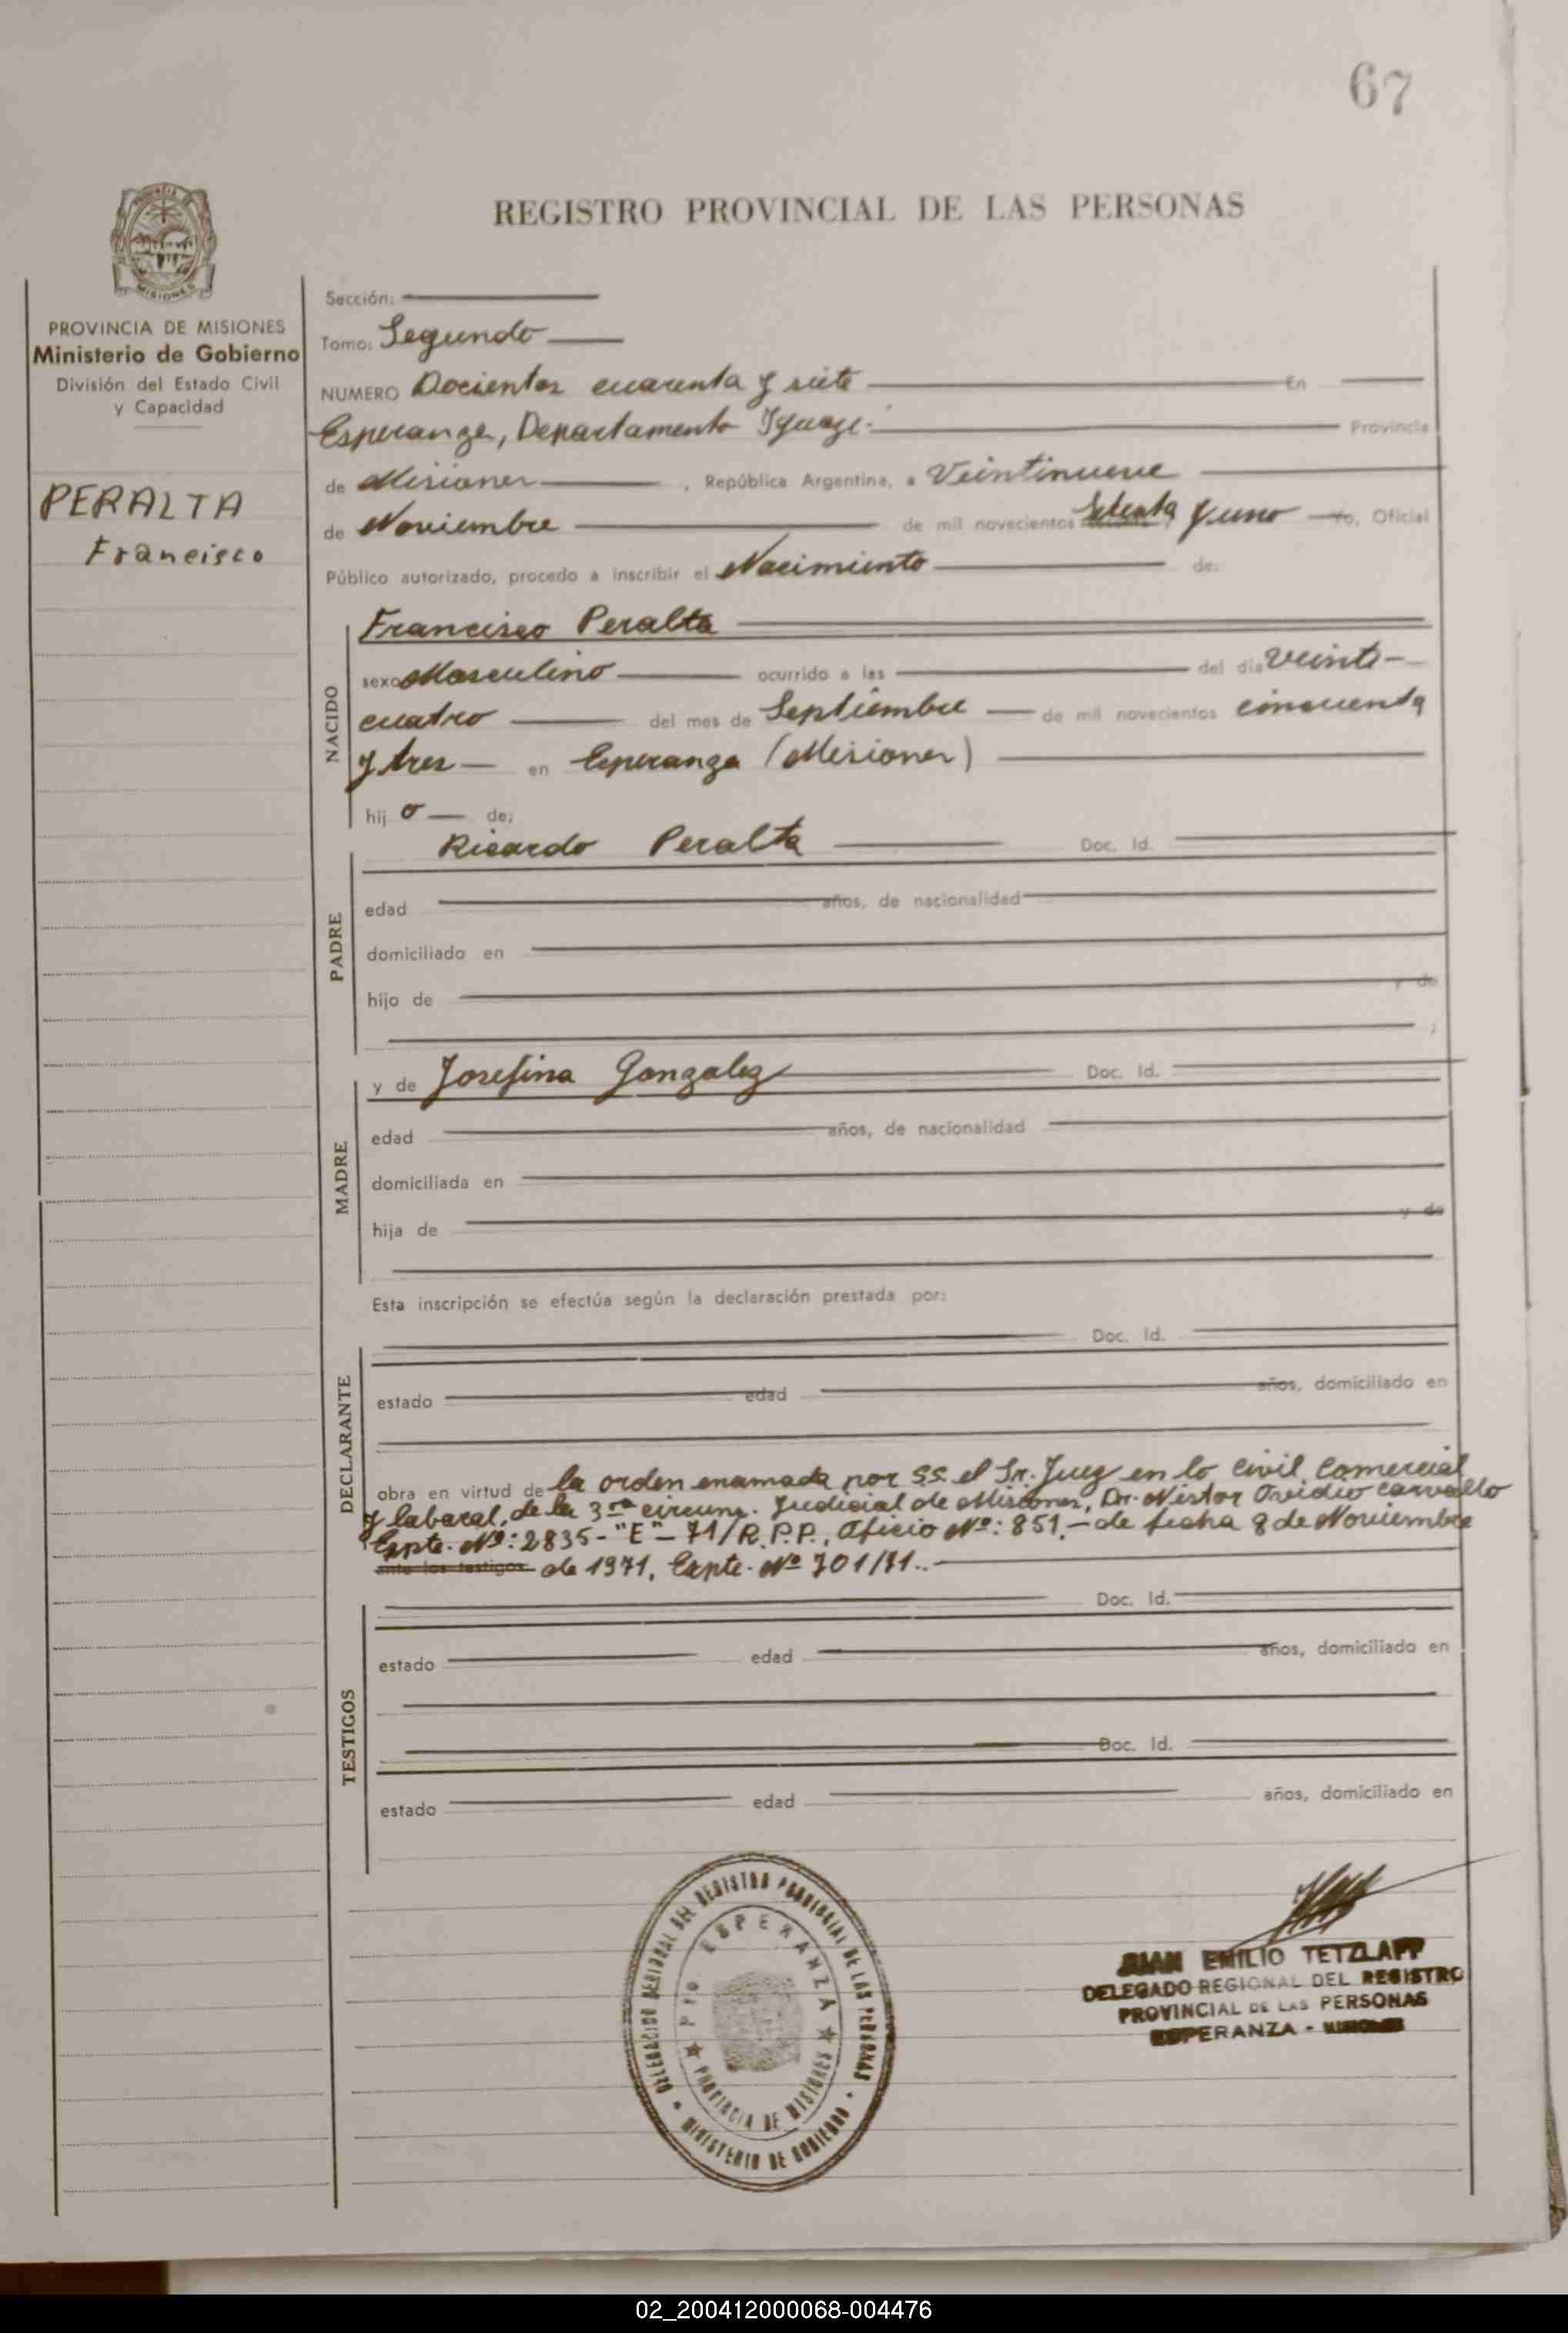 67
REGISTRO PROVINCIAL DE LAS PERSONAS
MISIONES
PROVINCIA DE MISIONES
Ministerio de Gobierno
División del Estado Civil
y Capacidad
PERALTA
Francisco
Sección:
Tomo: Segundo
NUMERO Docientos cuarenta y siete En
Esperanza, Departamento Iguazú Provincia
de Misiones , República Argentina, a Veintinueve
de Noviembre de mil novecientos Setenta y uno Yo, Oficial
Público autorizado, procedo a inscribir el Nacimiento de:
NACIDO
Francisco Peralta
sexo Masculino ocurrido a las del dia Veinti-
cuatro del mes de Septiembre de mil novecientos cincuenta
y tres en Esperanza (Misiones)
hij o de:
PADRE
Ricardo Peralta Doc. Id.
edad años, de nacionalidad
domiciliado en
hijo de y de
;
MADRE
y de Josefina Gonzalez Doc. Id.
edad años, de nacionalidad
domiciliada en
hija de y de
Esta inscripción se efectúa según la declaración prestada por:
DECLARANTE
Doc. Id.
estado edad años, domiciliado en
obra en virtud de la orden enamada por S.S. el Sr. Juez en lo Civil, Comercial
y laboral, de la 3ra circuns. Judicial de Misiones, Dr. Nestor Ovidio Carvallo
Expte. Nº: 2835-"E"-71/R.P.P., Oficio Nº: 851,- de fecha 8 de Noviembre
ante los testigos de 1971, Expte. Nº 701/71.-
TESTIGOS
Doc. Id.
estado edad años, domiciliado en
Doc. Id.
estado edad años, domiciliado en
DELEGACION REGIONAL DEL REGISTRO PROVINCIAL DE LAS PERSONAS
Pto. ESPERANZA
PROVINCIA DE MISIONES
MINISTERIO DE GOBIERNO
JUAN EMILIO TETZLAFF
DELEGADO REGIONAL DEL REGISTRO
PROVINCIAL DE LAS PERSONAS
ESPERANZA - MISIONES
02_200412000068-004476